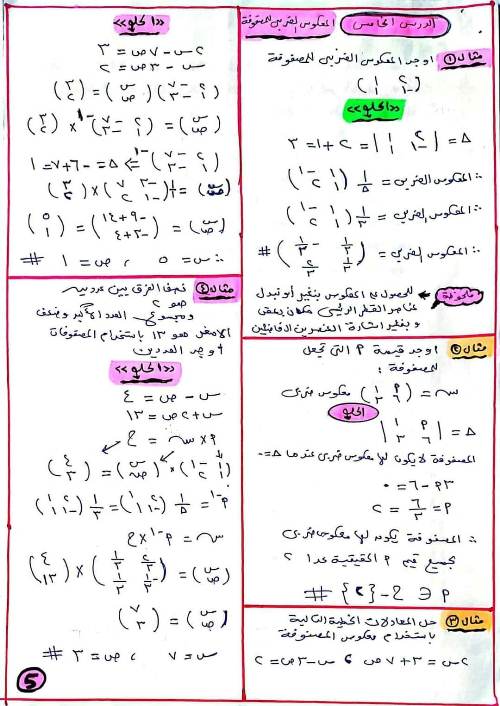 الدرس الخامس
المعكوس الضربي للمصفوفة
مثال ① اوجد المعكوس الضربي للمصفوفة
( ٢ ١ / -١ ١ )
«الحلو»
Δ = | ٢ ١ / -١ ١ | = ٢ + ١ = ٣
∴ المعكوس الضربي = ١/Δ ( ١ -١ / ١ ٢ )
∴ المعكوس الضربي = ١/٣ ( ١ -١ / ١ ٢ )
∴ المعكوس الضربي = ( ١/٣ -١/٣ / ١/٣ ٢/٣ ) #
ملحوظة
للحصول على المعكوس بنغير أو نبدل
عناصر القطر الرئيسى مكان بعض
وبغير اشارة العنصرين الآخرين
مثال ② اوجد قيمة P التى تجعل
المصفوفة :
س = ( P ١ / ٦ ٣ ) معكوس ضربى
الحلو
Δ = | P ١ / ٦ ٣ |
المصفوفة لا يكون لها معكوس ضربى عندما Δ = ٠
٣P - ٦ = ٠
P = ٦/٣ = ٢
∴ المصفوفة يكون لها معكوس ضربى
بجميع قيم P الحقيقية عدا ٢
P ∋ ح - {٢} #
مثال ③ حل المعادلات الخطية التالية
باستخدام معكوس المصفوفة
٢س = ٣ + ٧ص ، س - ٣ص = ٢
«الحلو»
٢س - ٧ص = ٣
س - ٣ص = ٢
( ٢ -٧ / ١ -٣ ) ( س / ص ) = ( ٣ / ٢ )
( س / ص ) = ( ٢ -٧ / ١ -٣ )⁻¹ × ( ٣ / ٢ )
( ٢ -٧ / ١ -٣ )⁻¹ ⇐ Δ = -٦ + ٧ = ١
( س / ص ) = ١/١ ( -٣ ٧ / -١ ٢ ) × ( ٣ / ٢ )
( س / ص ) = ( -٩ + ١٤ / -٣ + ٤ ) = ( ٥ / ١ )
∴ س = ٥ ، ص = ١ #
مثال ④ نصف الفرق بين عددين
هو ٢
ومجموع العدد الأكبر وضعف
الأصغر هو ١٣ باستخدام المصفوفات
اوجد العددين
«الحلو»
س - ص = ٤
س + ٢ص = ١٣
P × س = ج
( ١ -١ / ١ ٢ ) × ( س / ص ) = ( ٤ / ٣ )
P⁻¹ = ١/Δ ( ٢ ١ / -١ ١ ) = ١/٣ ( ٢ ١ / -١ ١ )
س = P⁻¹ × ج
( س / ص ) = ( ٢/٣ ١/٣ / -١/٣ ١/٣ ) × ( ٤ / ١٣ )
( س / ص ) = ( ٧ / ٣ )
س = ٧ ، ص = ٣ #
5